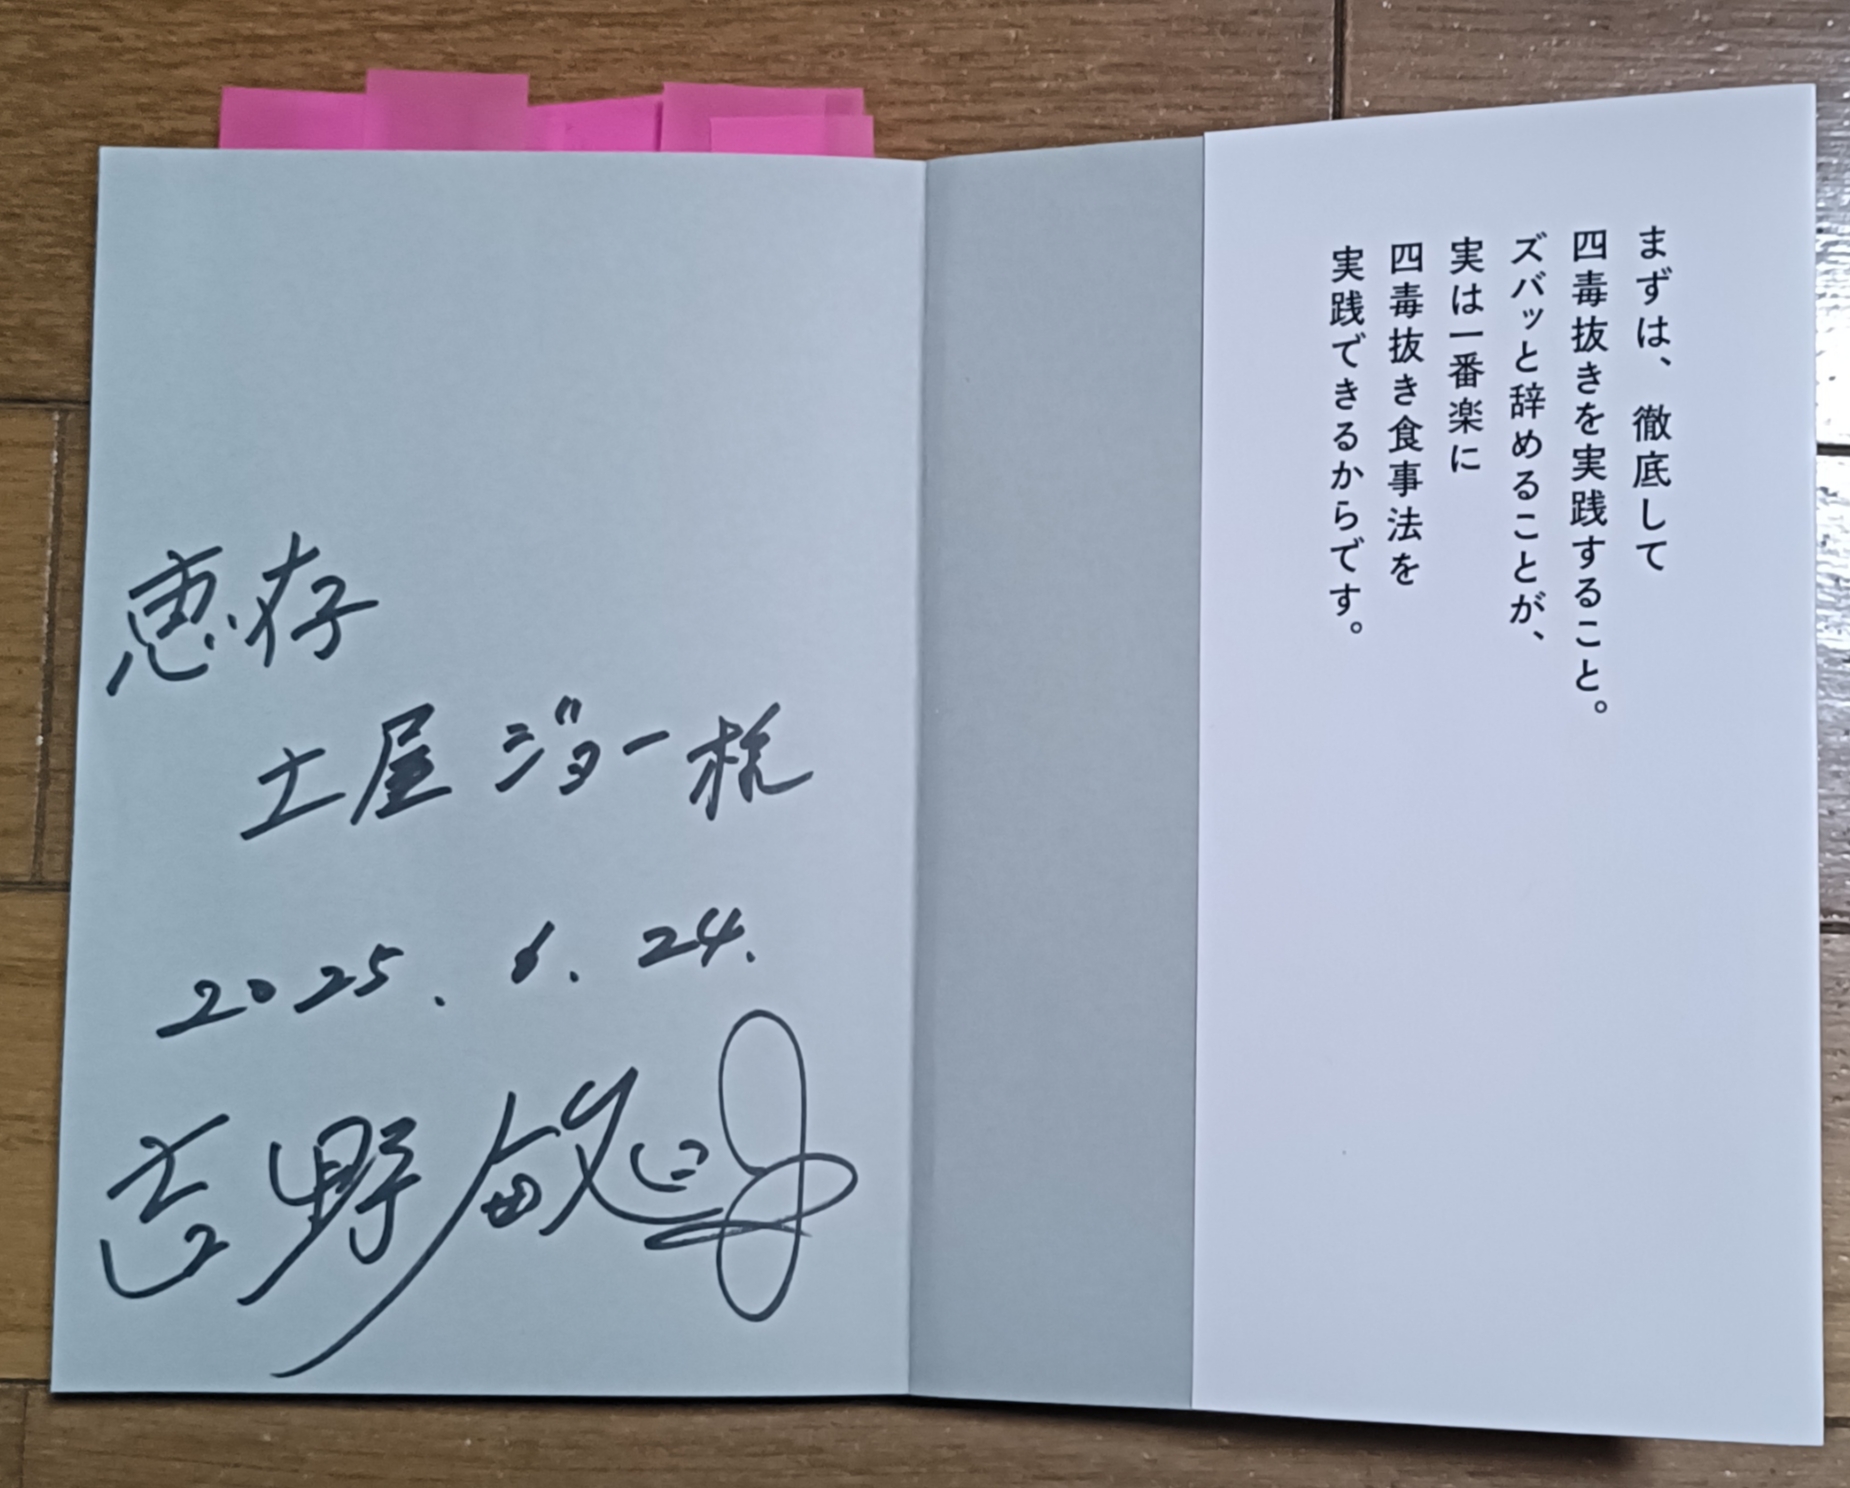 まずは、徹底して
四毒抜きを実践すること。
ズバッと辞めることが、
実は一番楽に
四毒抜き食事法を
実践できるからです。
恵存
土屋ジョー様
2025.6.24.
吉野敏明